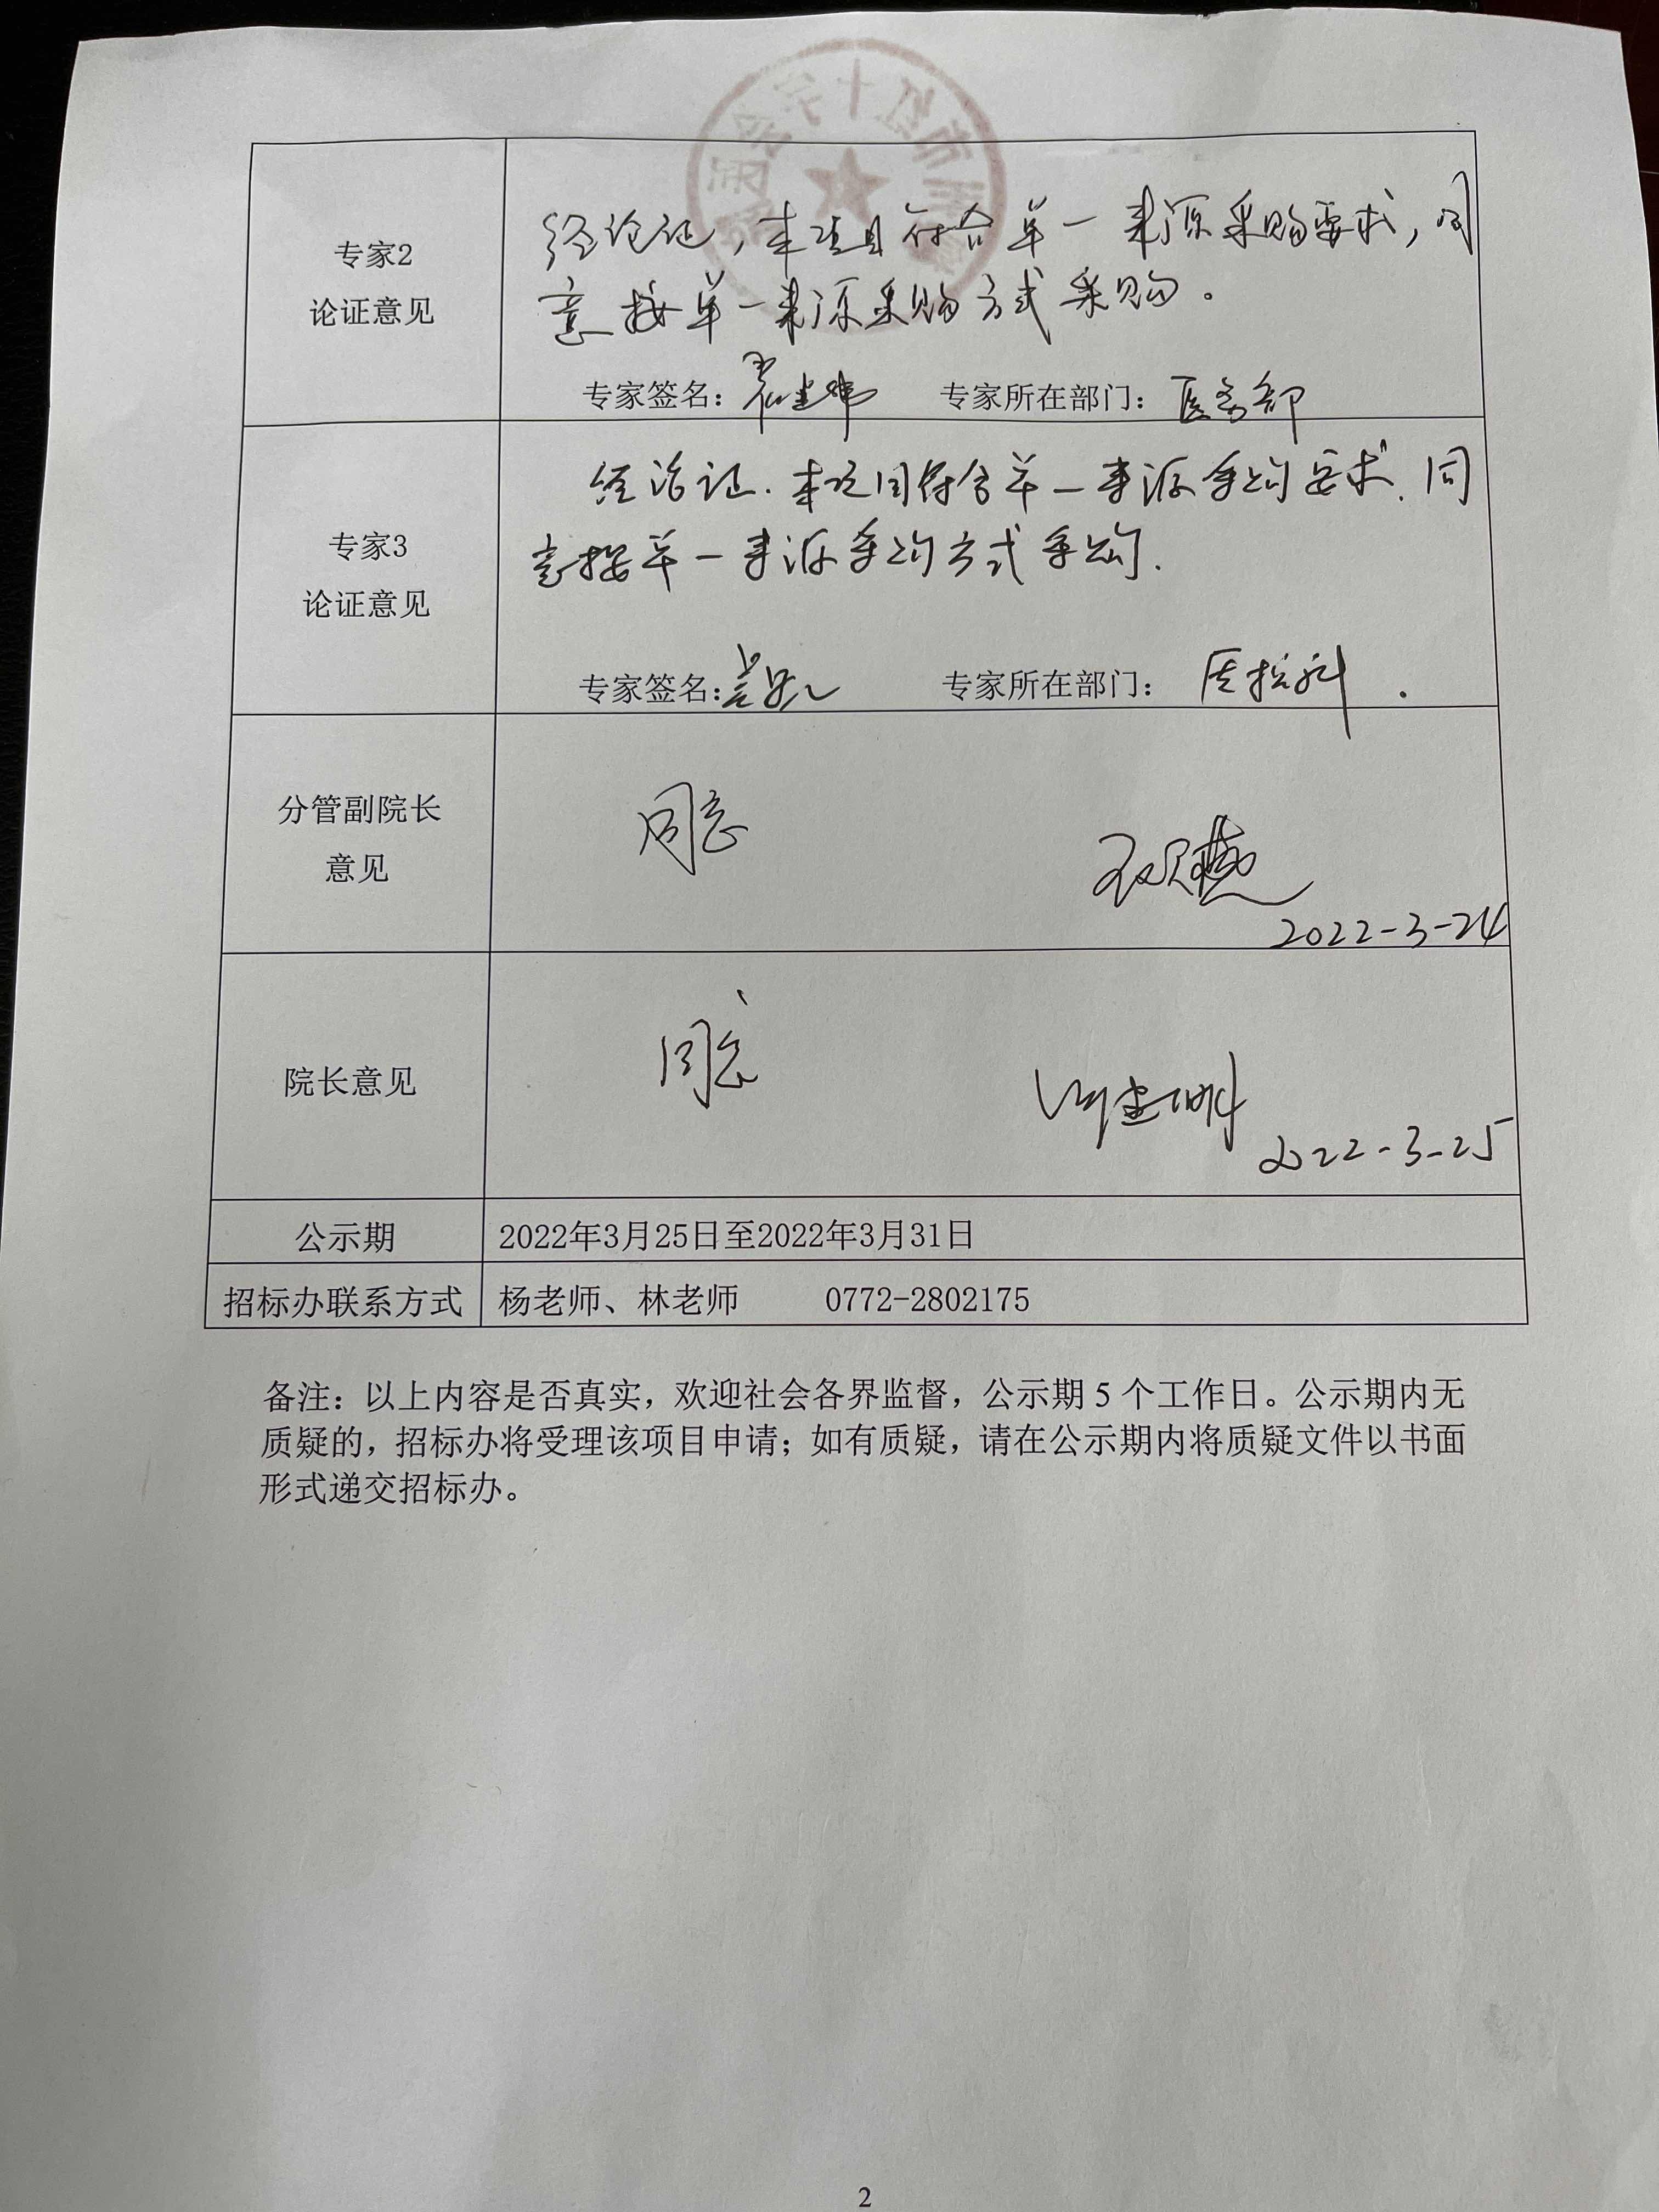 专家2
论证意见
经论证，本项目符合单一来源采购要求，同
意按单一来源采购方式采购。
专家签名： 专家所在部门：医务部
专家3
论证意见
经论证.本项目符合单一来源采购要求.同
意按单一来源采购方式采购.
专家签名： 专家所在部门：
分管副院长
意见
同意
2022-3-24
院长意见
同意
2022-3-25
公示期 2022年3月25日至2022年3月31日
招标办联系方式 杨老师、林老师 0772-2802175
备注：以上内容是否真实，欢迎社会各界监督，公示期 5 个工作日。公示期内无
质疑的，招标办将受理该项目申请；如有质疑，请在公示期内将质疑文件以书面
形式递交招标办。
2